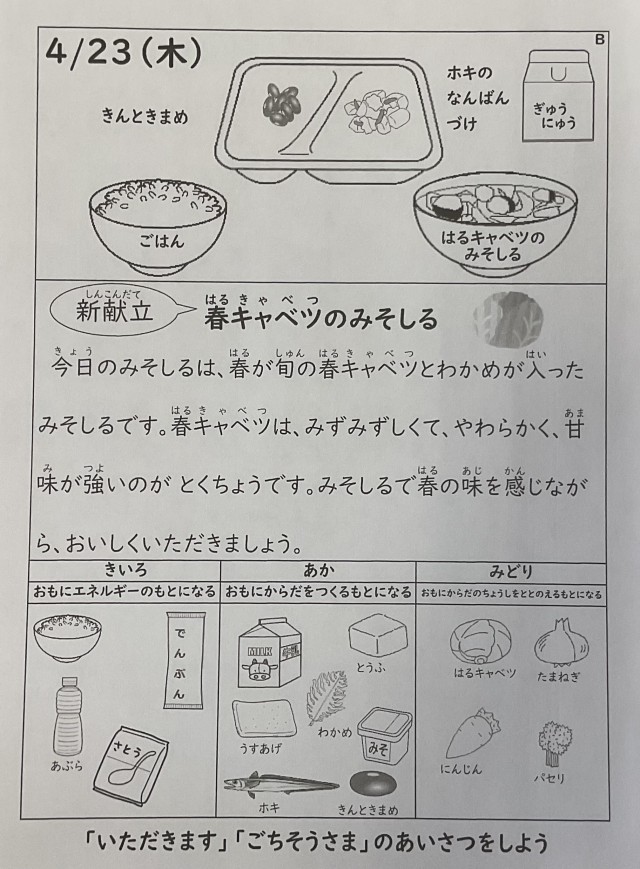 B
4/23（木）
きんときまめ
ホキの
なんばん
づけ
ぎゅう
にゅう
ごはん
はるキャベツの
みそしる
しんこんだて
新献立
はるきゃべつ
春キャベツのみそしる
きょう はる しゅん はるきゃべつ はい
今日のみそしるは、春が旬の春キャベツとわかめが入った
はるきゃべつ あま
みそしるです。春キャベツは、みずみずしくて、やわらかく、甘
み つよ はる あじ かん
味が強いのが とくちょうです。みそしるで春の味を感じなが
ら、おいしくいただきましょう。
きいろ あか みどり
おもにエネルギーのもとになる おもにからだをつくるもとになる おもにからだのちょうしをととのえるもとになる
でんぷん
あぶら
さとう
MILK
牛乳
とうふ
うすあげ
わかめ
みそ
ホキ
きんときまめ
はるキャベツ
たまねぎ
にんじん
パセリ
「いただきます」「ごちそうさま」のあいさつをしよう